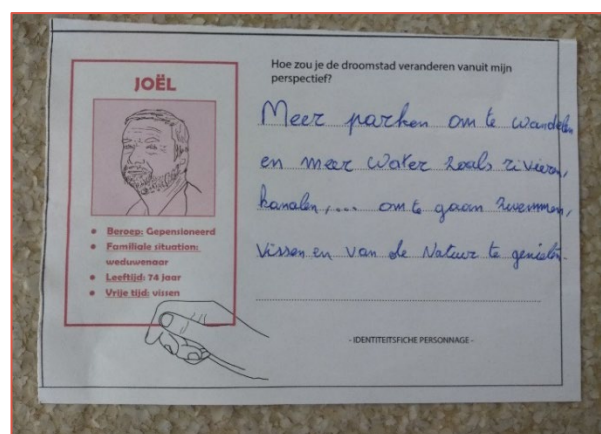 JOËL
Beroep: Gepensioneerd
Familiale situation:
weduwenaar
Leeftijd: 74 jaar
Vrije tijd: vissen
Hoe zou je de droomstad veranderen vanuit mijn
perspectief?
Meer parken om te wandelen
en meer water zoals rivieren,
kanalen,... om te gaan zwemmen,
vissen en van de Natuur te genieten.
- IDENTITEITSFICHE PERSONNAGE -